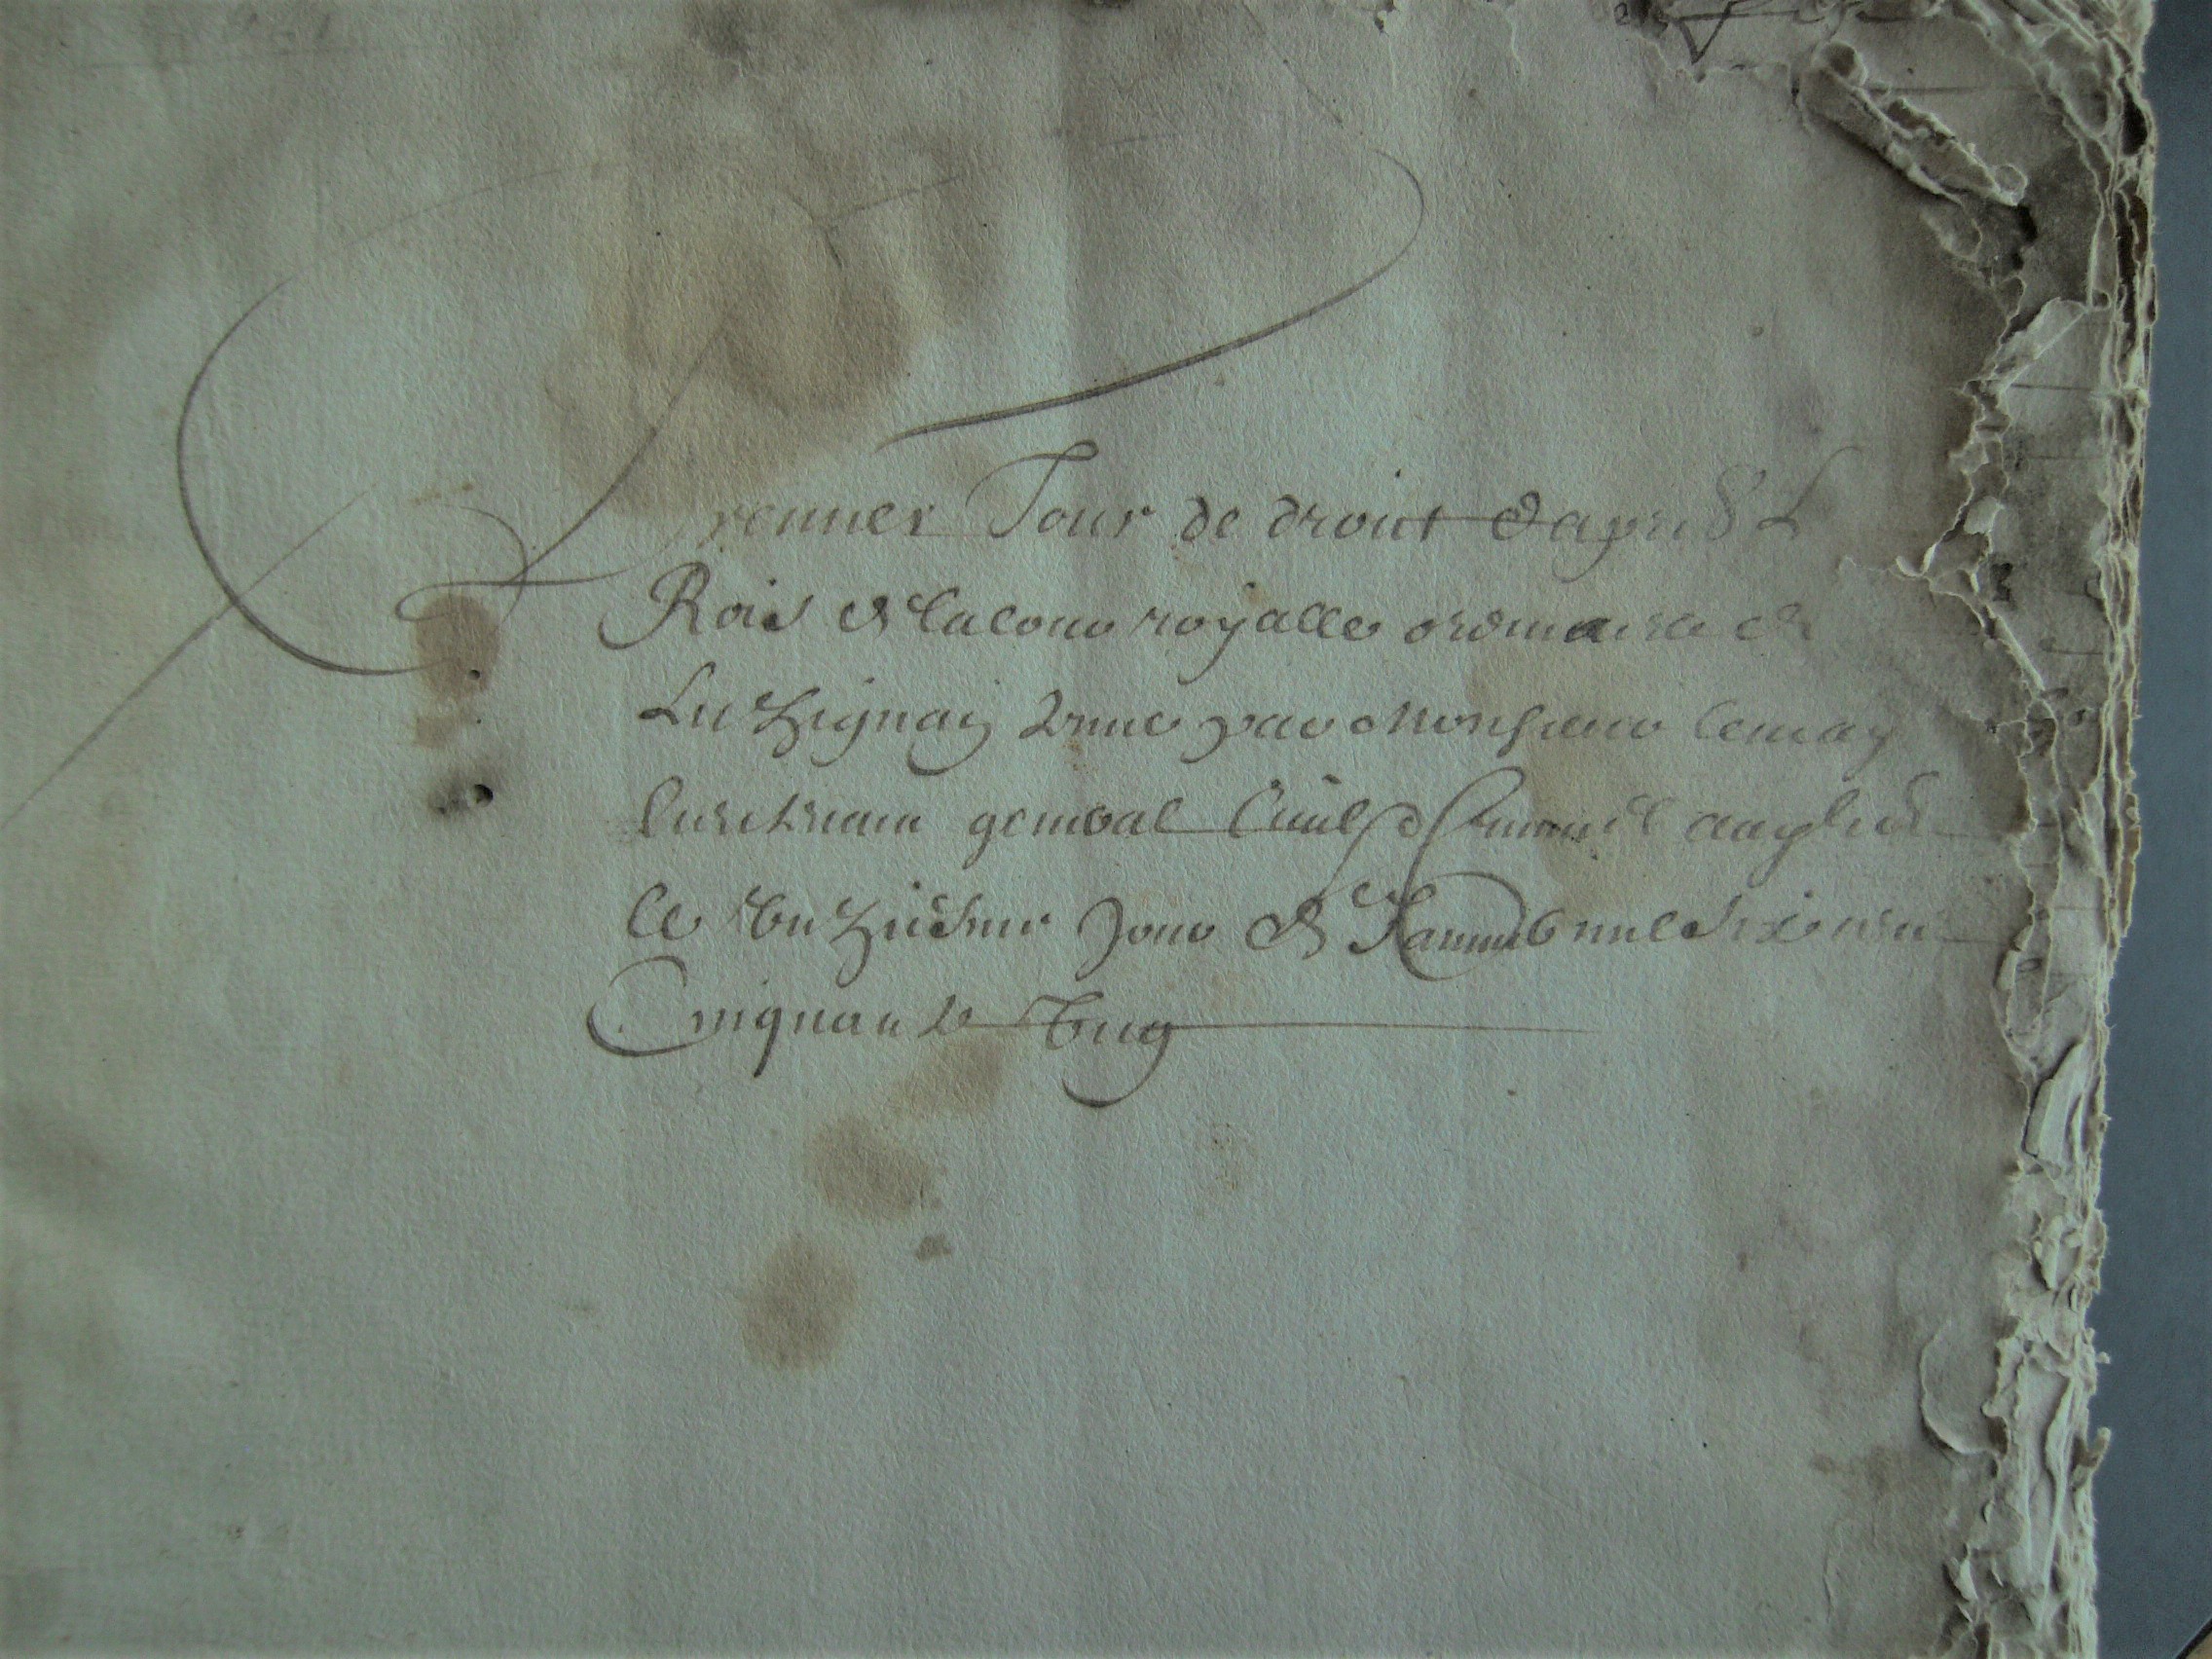 Premier Jour de droict dapres L
Rois de la cour royalle ordinaire de
Luzignan tenue par Monsieur
lieutenant general Ciuil & Criminel
le unziesme Jour de Januier mil six cens
Cinquante Ung